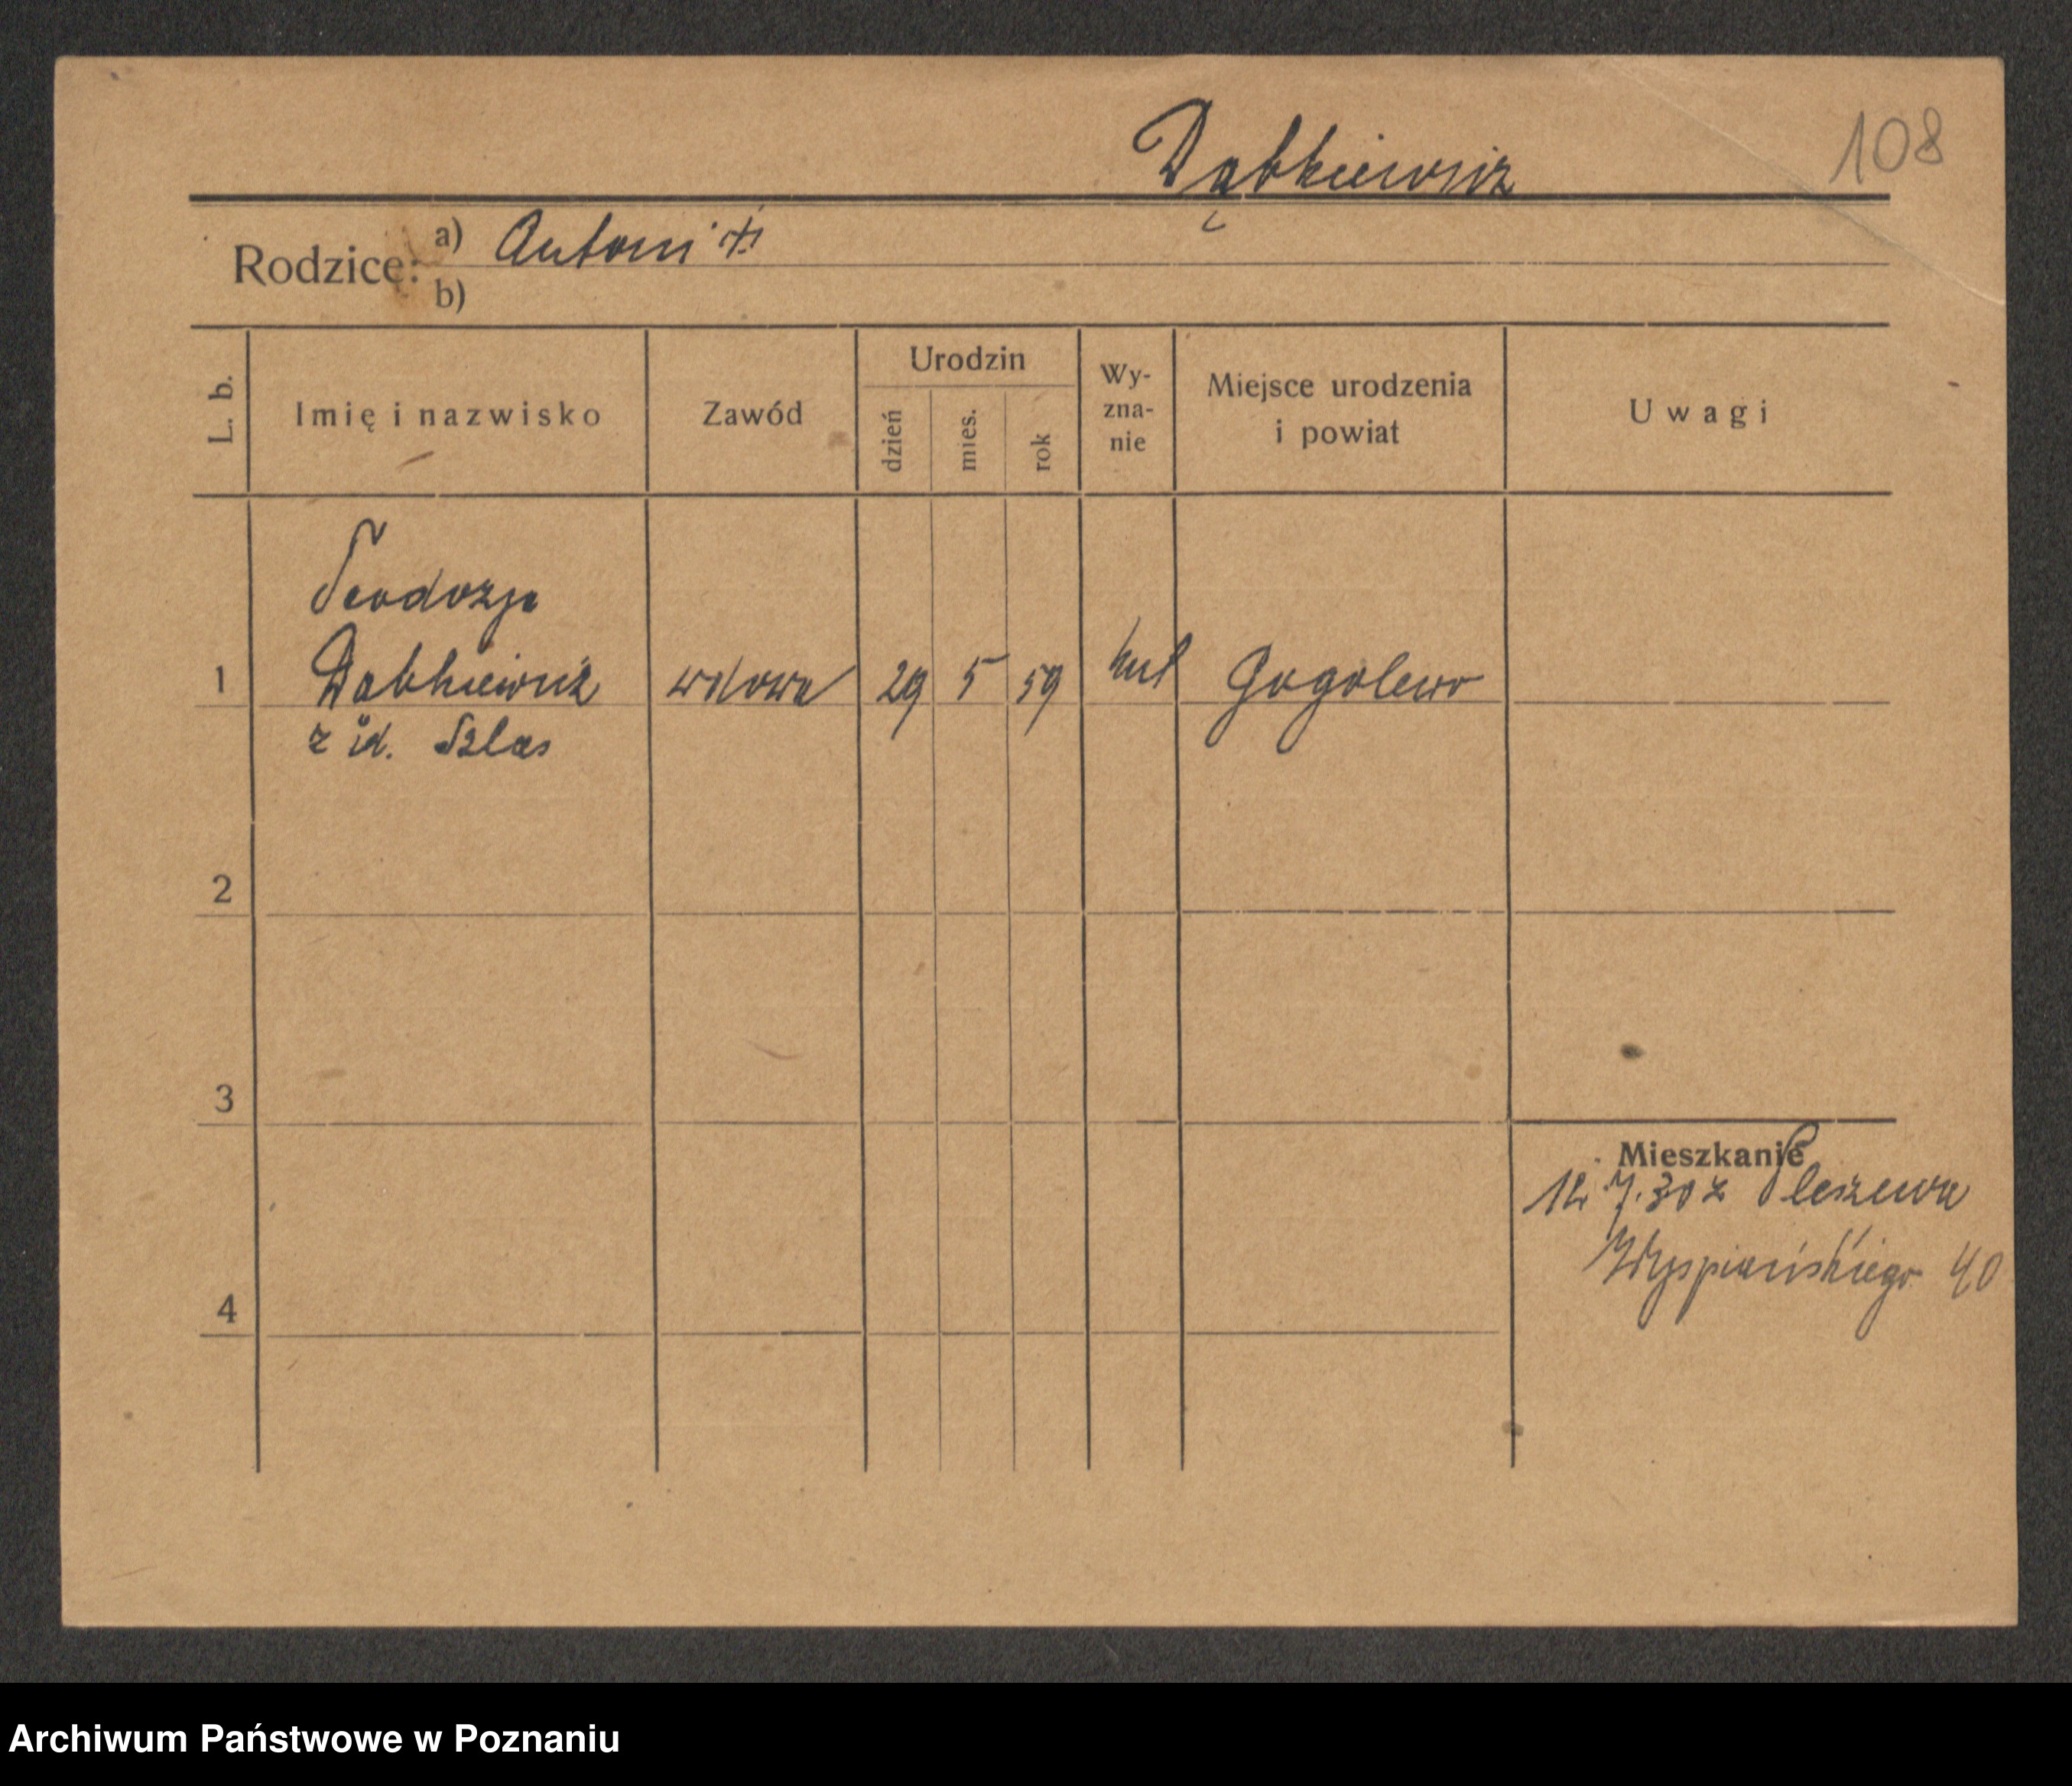 Dąbkiewicz
108
Rodzice: a) Antoni
b)
L. b.
Imię i nazwisko
Zawód
Urodzin
dzień
mies.
rok
Wy-
zna-
nie
Miejsce urodzenia
i powiat
Uwagi
Teodozja
1 Dąbkiewicz wdowa 29 5 59 kat Gogolewo
z d. Szlas
2
3
Mieszkanie
12.7.30 z Pleszewa
4
Wyspiańskiego 40
Archiwum Państwowe w Poznaniu